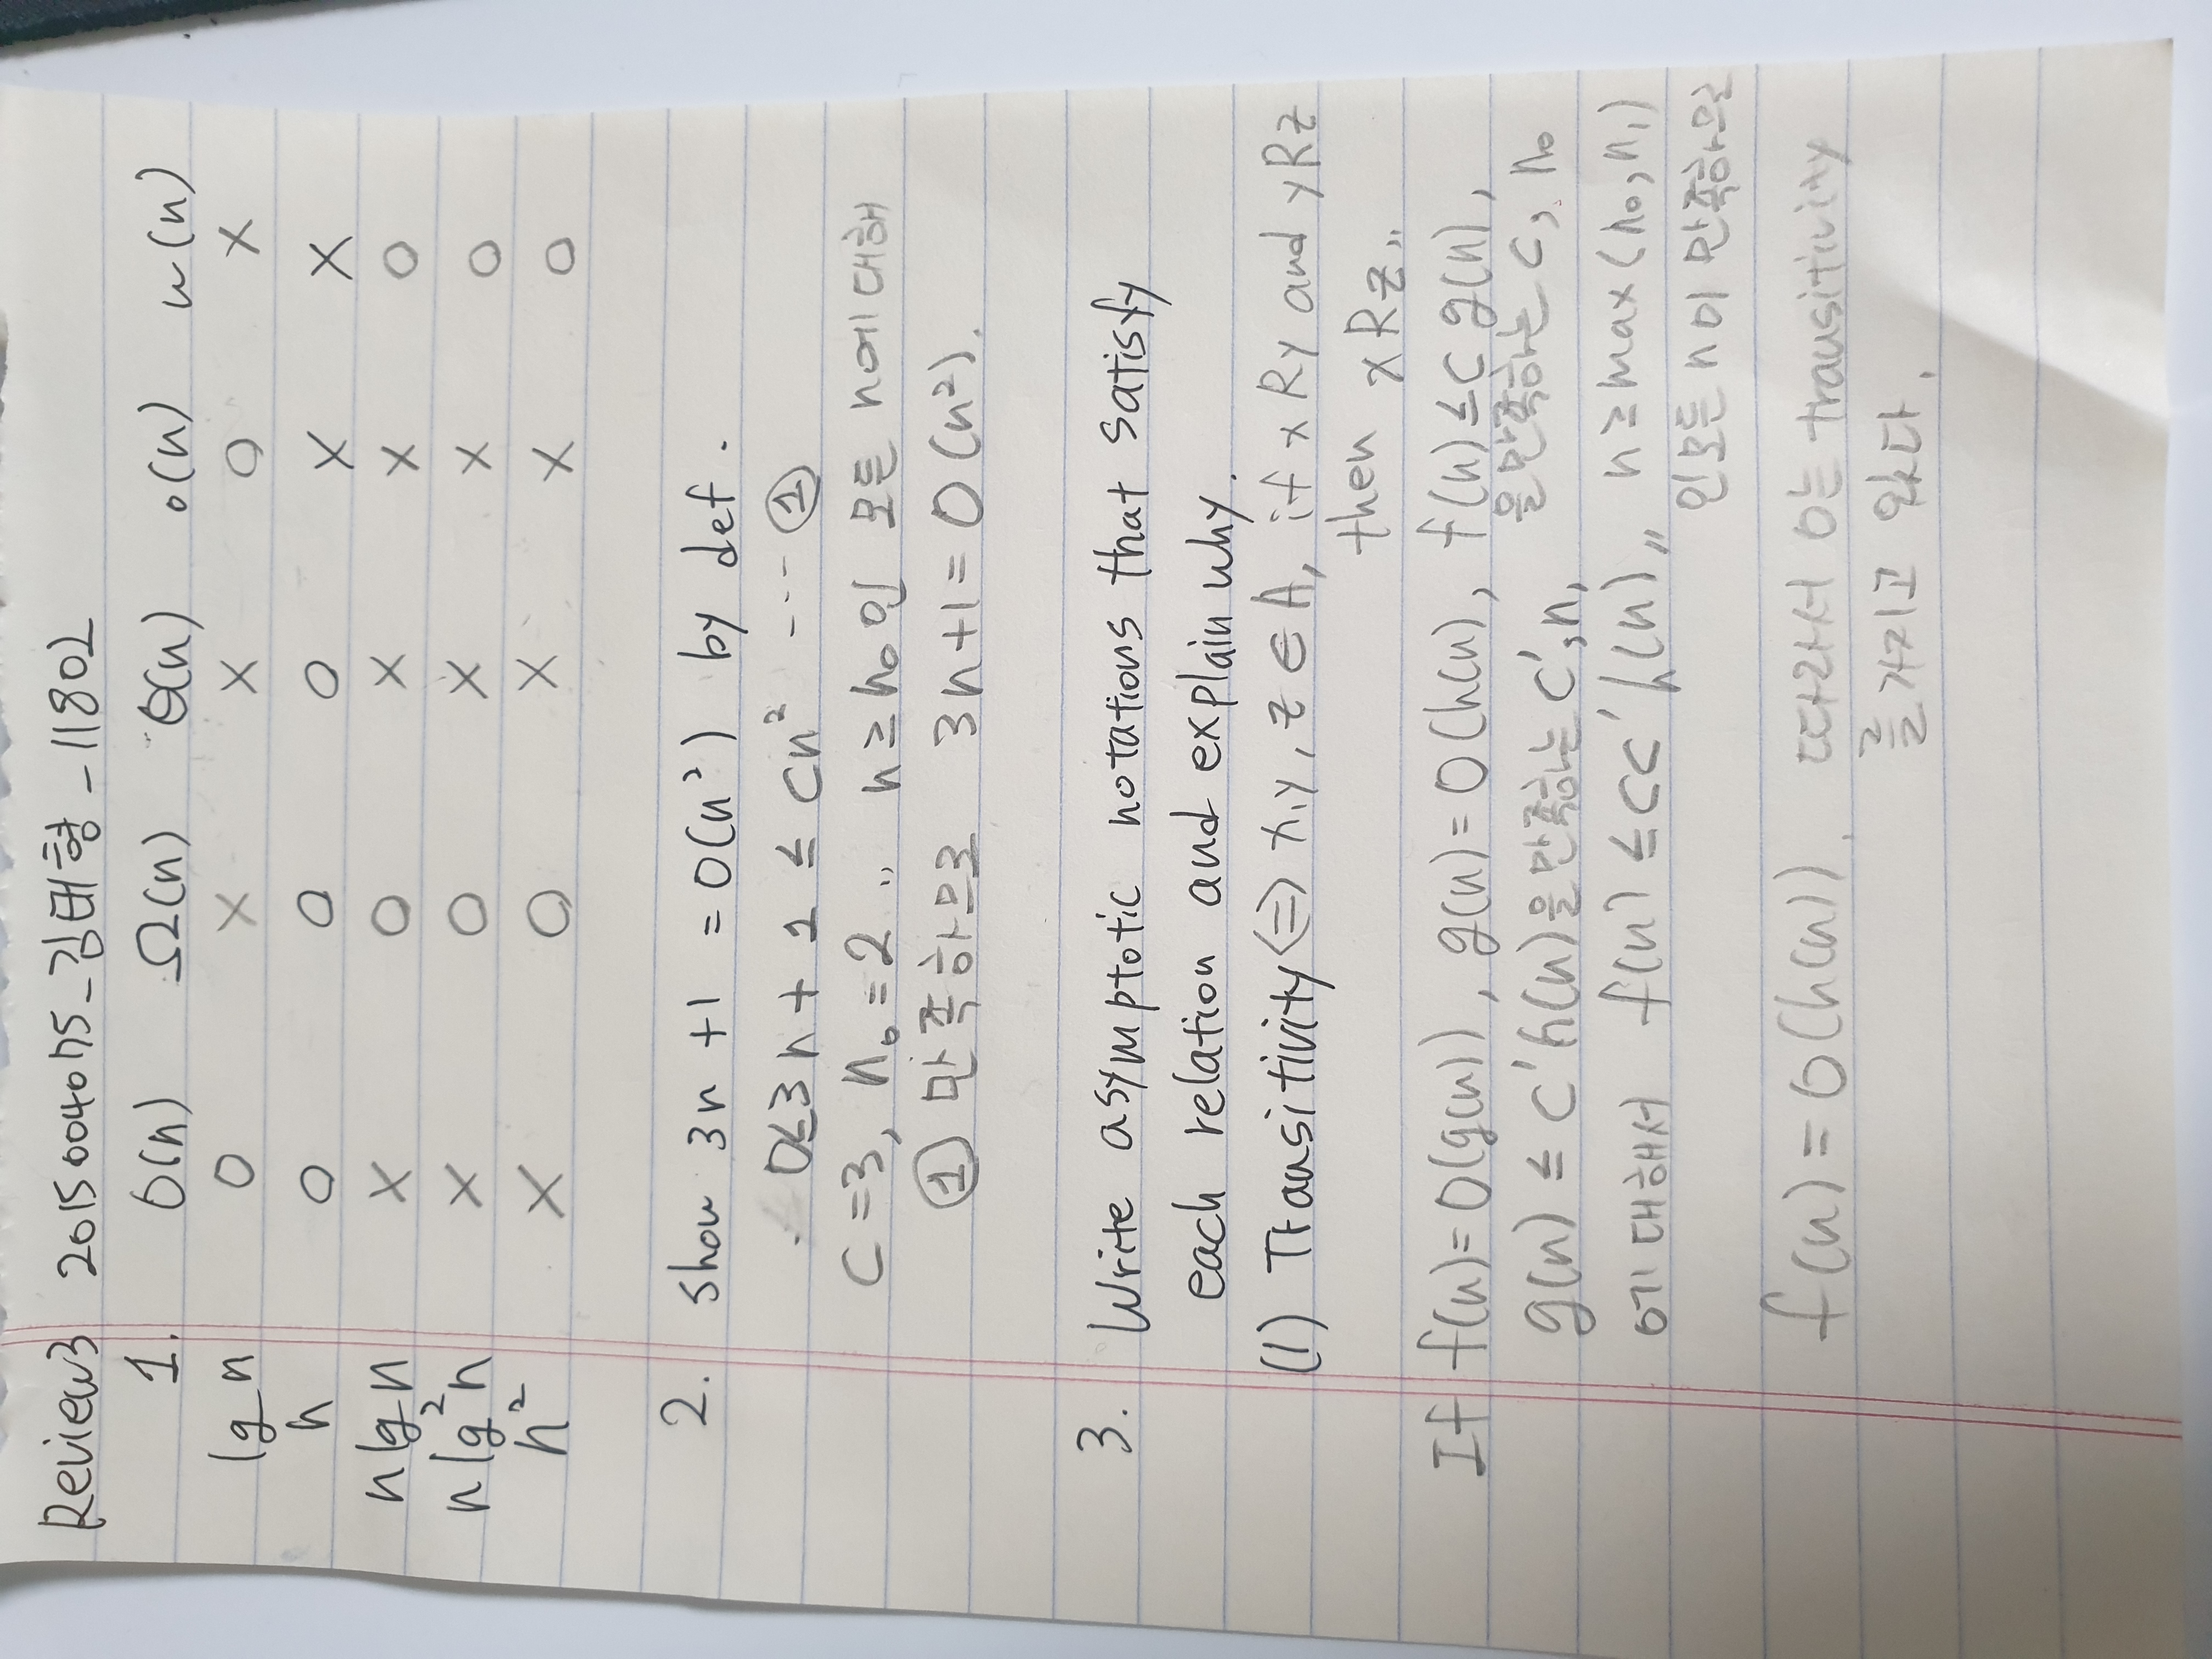 Review3 2015004075_김태형_11802
1. O(n) Ω(n) Θ(n) o(n) w(n)
lg n O X X O X
n O O O X X
n lg n X O X X O
n lg²n X O X X O
n² X O X X O
2. show 3n +1 = O(n²) by def.
0≤3n + 1 ≤ cn² --- ①
C =3, n₀ =2 ,, n ≥ n₀ 인 모든 n에 대해
① 만족하므로 3n+1 = O (n²).
3. Write asymptotic notations that satisfy
each relation and explain why.
(1) Transitivity <=> x,y, z ∈ A, if x Ry and yRz
then xRz,,
If f(n)= O(g(n)), g(n)= O(h(n), f(n) ≤c g(n),
을 만족하는 c, n₀
g(n) ≤ c'h(n)을 만족하는 c', n₁
에 대해서 f(n) ≤cc'h(n),, n ≥ max(n₀,n₁)
인모든 n이 만족하므로
f(n) = O(h(n)). 따라서 O는 transitivity
를 가지고 있다.